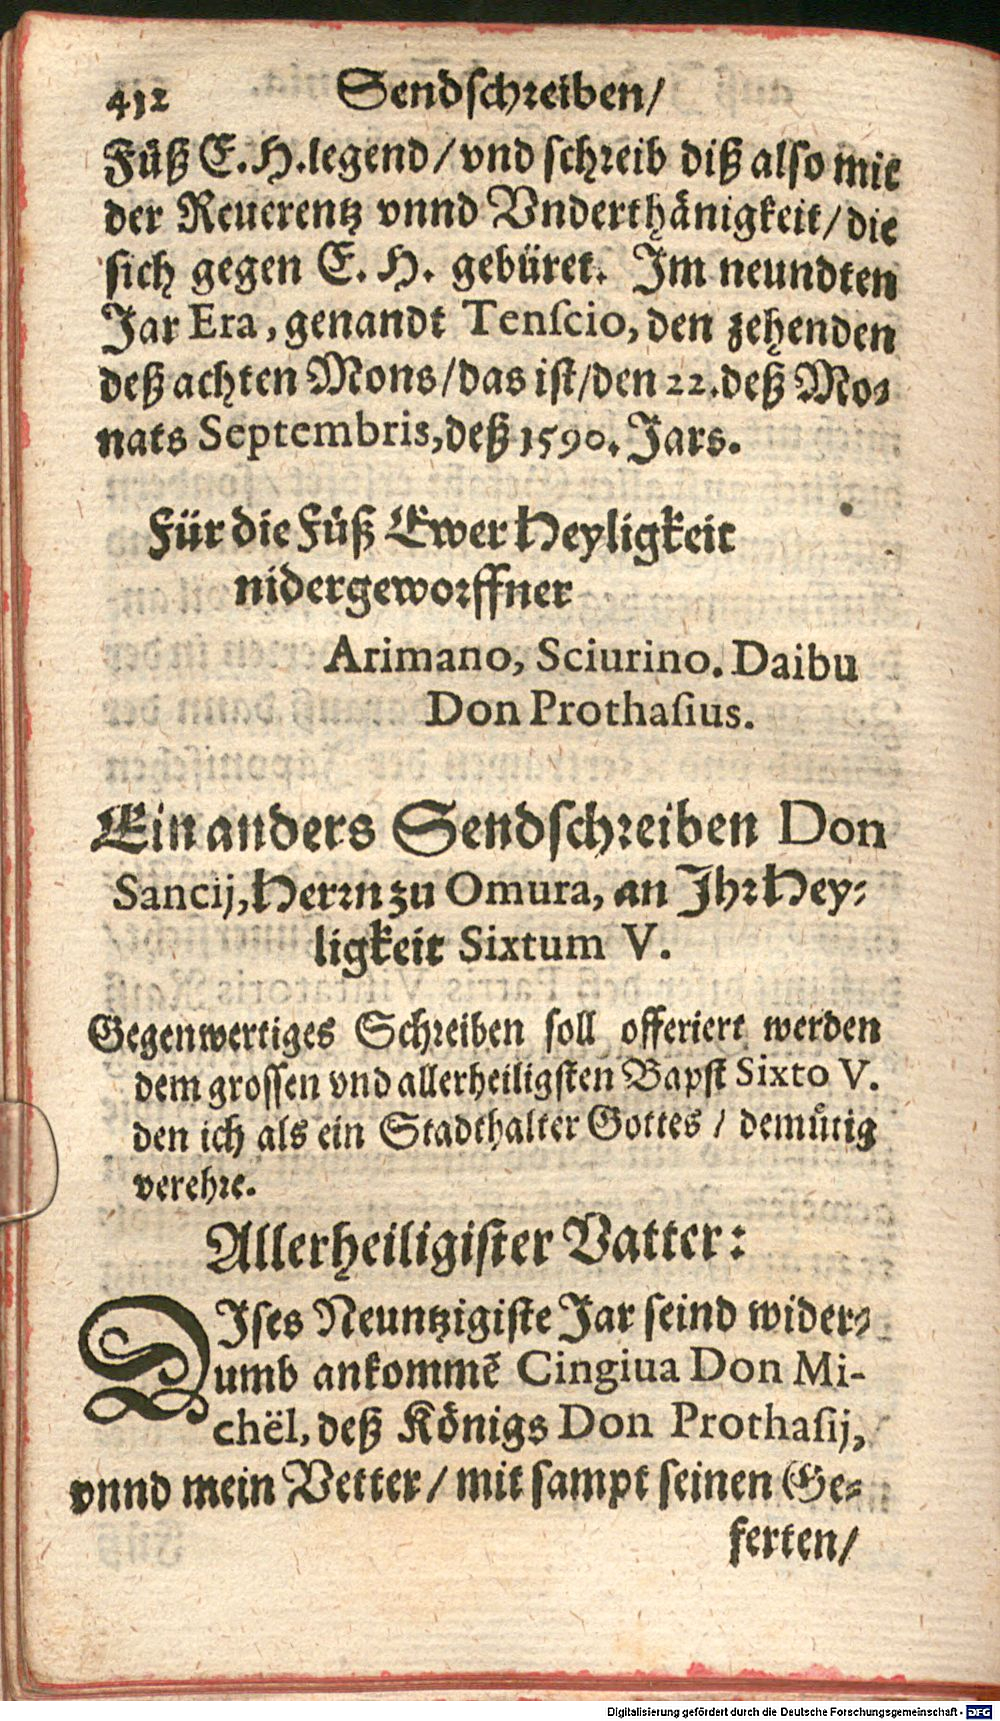 412 Sendschreiben/
Füß E. H. legend/ vnd schreib diß also mit
der Reuerentz vnnd Vnderthänigkeit/ die
sich gegen E. H. gebüret. Im neundten
Jar Era, genandt Tenscio, den zehenden
deß achten Mons/ das ist/ den 22. deß Mo-
nats Septembris, deß 1590. Jars.
Für die Füß Ewer Heyligkeit
nidergeworffner
Arimano, Sciurino. Daibu
Don Prothasius.
Ein anders Sendschreiben Don
Sancij, Herrn zu Omura, an Jhr Hey-
ligkeit Sixtum V.
Gegenwertiges Schreiben soll offeriert werden
dem grossen vnd allerheiligsten Bapst Sixto V.
den ich als ein Stadthalter Gottes / demütig
verehre.
Allerheiligister Vatter:
DJses Neuntzigiste Jar seind wider-
umb ankommẽ Cingiua Don Mi-
chël, deß Königs Don Prothasij,
vnnd mein Vetter/ mit sampt seinen Ge-
ferten/
Digitalisierung gefördert durch die Deutsche Forschungsgemeinschaft - DFG